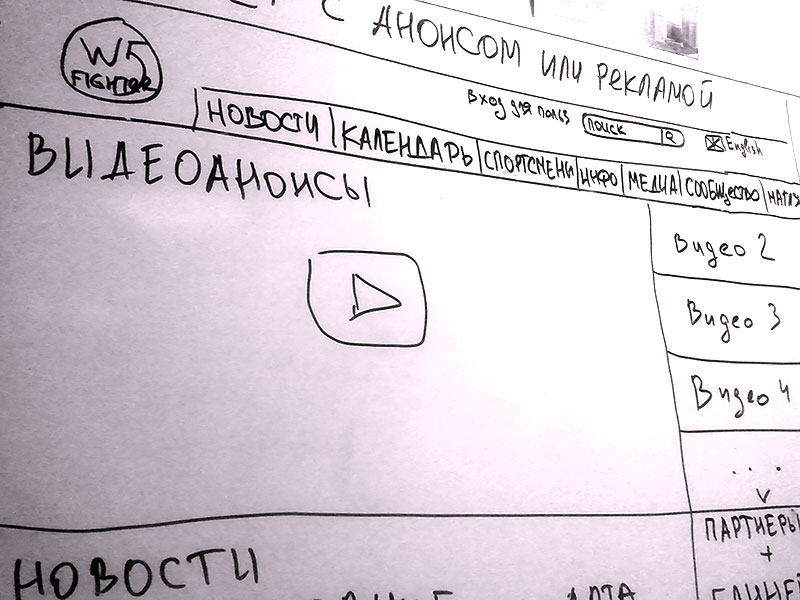 С АНОНСОМ ИЛИ РЕКЛАМОЙ
W5
FIGHTER
Вход для польз
ПОИСК
English
НОВОСТИ КАЛЕНДАРЬ СПОРТСМЕНЫ ИНФО МЕДИА СООБЩЕСТВО
ВИДЕОАНОНСЫ
Видео 2
Видео 3
Видео 4
...
ПАРТНЕРЫ
+
НОВОСТИ